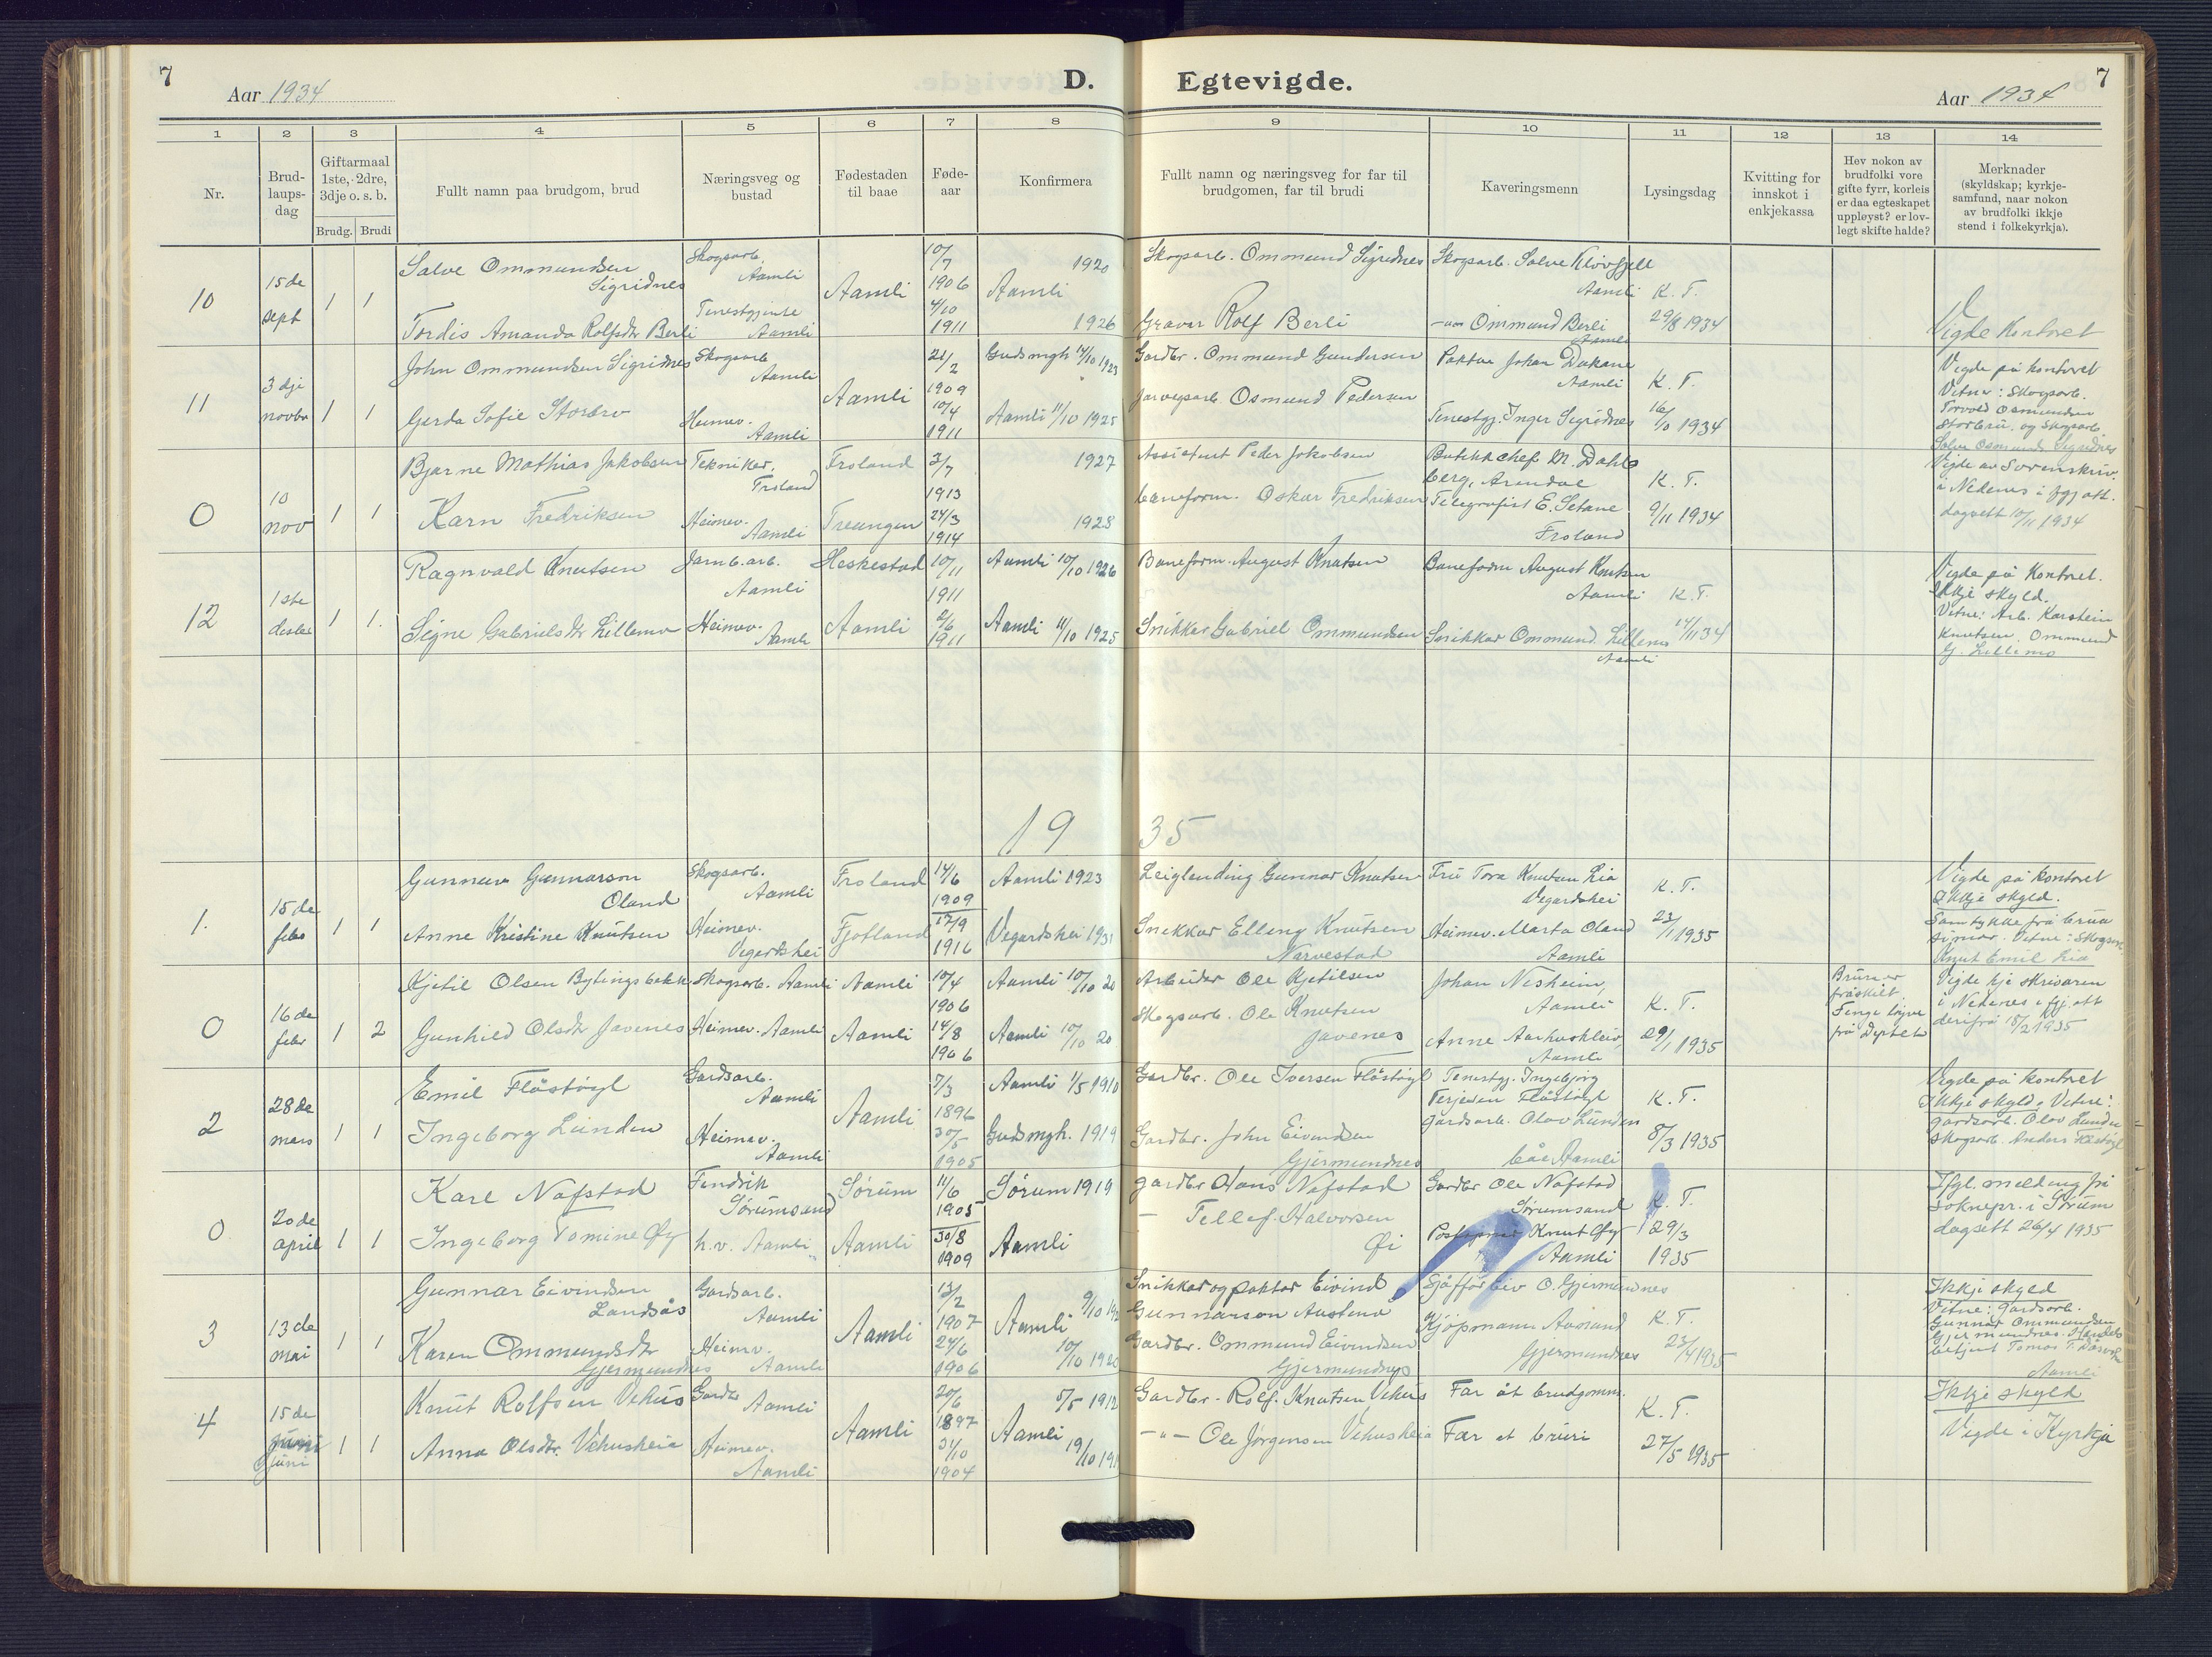 7
Aar 1934
D.
Egtevigde.
7
Aar 1934
1 2 3 4 5 6 7 8 9 10 11 12 13 14
Nr.
Brud-
laups-
dag
Giftarmaal
1ste, 2dre,
3dje o. s. b.
Brudg. Brudi
Fullt namn paa brudgom, brud
Næringsveg og
bustad
Fødestaden
til baae
Føde-
aar
Konfirmera
Fullt namn og næringsveg for far til
brudgomen, far til brudi
Kaveringsmenn
Lysingsdag
Kvitting for
innskot i
enkjekassa
Hev nokon av
brudfolki vore
gifte fyrr, korleis
er daa egteskapet
uppløyst? er lov-
legt skifte halde?
Merknader
(skyldskap; kyrkje-
samfund, naar nokon
av brudfolki ikkje
stend i folkekyrkja).
10
15de
sept
1 1
Salve Ommundsen
Sigridnes
Tordis Amanda Rolfsdtr Berli
Skogsarb.
Aamli
Tenestgjente
Aamli
Aamli
10/7
1906
4/10
1911
1920
Aamli
1926
Skogsarb. Ommund Sigridnes
Graver Rolf Berli
Skogsarb. Salve Kløvfjell
Aamli
-"- Ommund Berli
Aamli
K. T.
29/8 1934
Vigde Kontoret
11
3dje
novbr
1 1
John Ommundsen Sigridnes
Gerda Sofie Storbru
Skogsarb
Aamli
Heimev.
Aamli
Aamli
21/2
1909
10/4
1911
Gudsmgh 14/10 1923
Aamli 11/10 1925
Gardbr. Ommund Gundersen
Osmund Pedersen
Paktar Johan
Aamli
Tenestgj. Inger Sigridnes
K. T.
1934
Vigde på kontoret
Vitne: Skogsarb.
Torvald Osmundsen
Storbru. og Skogsarb.
Salve Osmunds. Sigridnes
0
10
nov
1 1
Bjarne Mathias Jakobsen
Karn Fredriksen
Tekniker.
Froland
Heimev.
Aamli
Froland
Treungen
2/7
1913
24/3
1914
1927
1928
Assistent Peder Jakobsen
baneform. Oskar Fredriksen
Butikkchef M. Dahls
berg, Arendal
Telegrafist E. Setane
Froland
K. T.
9/11 1934
Vigde av Sorenskriv.
i Nedenes i fgj. att.
dagsett 10/11 1934
12
1ste
desbr
1 1.
Ragnvald Knutsen
Signe Gabrielsdtr Lillemo
Jarnb.arb.
Aamli
Heimev.
Aamli
Heskestad
Aamli
10/11
1911
2/6
1911
Aamli 10/10 1926
Aamli 11/10 1925
Baneform. August Knutsen
Snikker Gabriel Ommundsen
Baneform August Knutsen
Aamli
Snikkar Ommund Lillemo
Aamli
K. T.
14/11 34
Vigde på Kontoret.
Ikkje skyld.
Vitne: Arb. Karstein
Knutsen. Ommund
G. Lillemo
19 35
1.
15de
febr
1 1
Gunnar Gunnarson
Oland
Anne Kristine Knutsen
Skogsarb.
Aamli
Heimev.
Vegardshei
Froland
Fjotland
14/6
1909
17/9
1916
Aamli 1923
Vegardshei 1931
Leiglending Gunnar Knutsen
Snekkar Elling Knutsen
Narvestad
Fru Tora Knutsen Lia
Vegardshei
Heimev. Marta Oland
Aamli
K. T.
23/1 1935
Vigde på kontoret
Ikkje skyld.
Samtykke frå brua
Vitne: Skogsarb
Knut Emil Lia
0
16de
febr
1 2
Kjetil Olsen Bylingsbekk
Gunhild Olsdtr Javenes
Skogsarb. Aamli
Heimev. Aamli
Aamli
Aamli
10/4
1906
14/8
1906
Aamli 10/10 20
Aamli 10/10 20
Arbeider Ole Kjetilsen
Skogsarb. Ole Knutsen
Javenes
Johan Nesheim,
Aamli
Anne
Aamli
K. T.
29/1 1935
Bruri er
fråskilt
frå
Vigde hjå skrivaren
i Nedenes i fgj. att
derifrå 18/2 1935
2
28de
mars
1 1
Emil Fløstøyl
Ingeborg Lunden
Gardsarb.
Aamli
Heimev.
Aamli
Aamli
7/3
1896
30/5
1905
Aamli 1/5 1910
Gudsmgh. 1919
Gardbr. Ole Iversen Fløstøyl
Gardbr. John Eivendsen
Gjermundnes
Tenestgj. Ingebjørg
Terjesen Fløstøyl
gardsarb. Olav Lunden
båe Aamli
K. T.
8/3 1935
Vigde på kontoret
Ikkje skyld. Vitne:
gardsarb. Olav Lunden
Skogsarb. Anders Fløstøyl
0
20de
april
1 1
Karl Nafstad
Ingeborg Tomine Øy
Sørumsand
h.v. Aamli
Sørum
Aamli
11/6
1905
30/8
1909
Sørum 1919
Aamli
gardbr Hans Nafstad
- Tellef Halvorsen
Øi
Gardbr Ole Nafstad
Sørumsand
Knut Øy
Aamli
K. T.
29/3
1935
Ifgl. melding frå
soknepr. i Sørum
dagsett 26/4 1935
3
13de
mai
1 1
Gunnar Eivindsen
Landsås
Karen Ommundsdtr
Gjermundnes
Gardsarb.
Aamli
Heimev.
Aamli
Aamli
13/2
1907
24/6
1906
Aamli
10/10 1920
Snikkar og paktar Eivind
Gunnarson
Gardbr. Ommund Eivindsen
Gjermundnes
Sjåffør Eiv O. Gjermundnes
Kjøpmann
Gjermundnes
K. T.
23/4 1935
Ikkje skyld
Vitne: gardsarb.
Gunnar Ommundsen
Gjermundnes. Handels
betjent Tomas T.
Aamli
4
15de
juni
1 1
Knut Rolfsen Vehus
Anna Olsdtr. Vehusheia
Gardbr
Aamli
Heimev.
Aamli
Aamli
20/6
1897
31/10
1904
5/5 1912
Aamli
19/10
Gardbr. Rolf Knutsen Vehus
-"- Ole Jørgensen Vehusheia
Far åt brudgomm.
Far åt bruri
K. T.
27/5 1935
Ikkje skyld
Vigde i Kyrkja